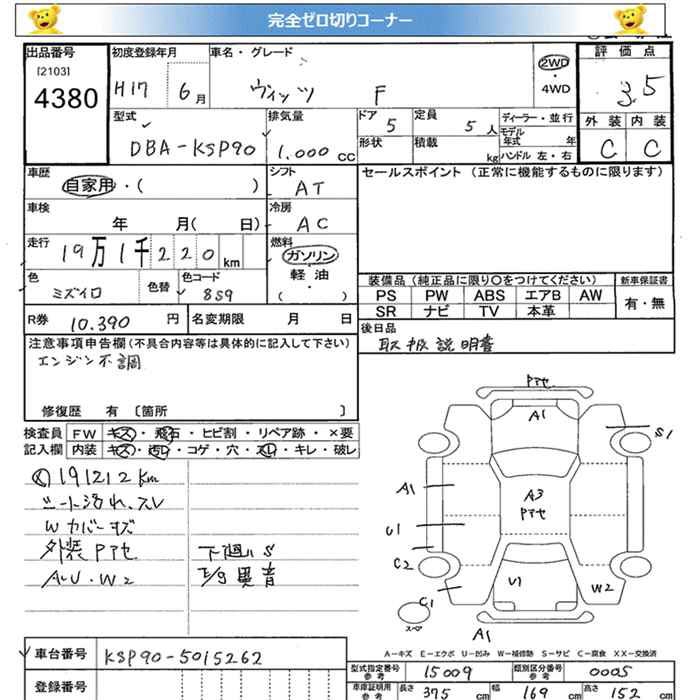 完全ゼロ切りコーナー
出品番号 初度登録年月 車名・グレード 評価点
[2103]
4380 H17 6月 ヴィッツ F 2WD・4WD 3.5
型式 排気量 ドア 5 定員 5人 ディーラー・並行 外装 内装
DBA-KSP90 1.000 cc 形状 積載 kg モデル年式 年 ハンドル 左・右 C C
車歴 シフト セールスポイント (正常に機能するものに限ります)
自家用・( ) AT
車検 冷房
年 月( 日) AC
走行 燃料
19万1千220km ガソリン・軽・油・( )
色 色替 色コード 装備品 (純正品に限り○をつけてください) 新車保証書
ミズイロ 859 PS PW ABS エアB AW 有・無
SR ナビ TV 本革
R券 10.390 円 名変期限 月 日 後日品
注意事項申告欄 (不具合内容等は具体的に記入して下さい) 取扱説明書
エンジン不調
修復歴 有 〔箇所 〕
検査員 FW キズ・飛石・ヒビ割・リペア跡・×要
記入欄 内装 キズ・汚レ・コゲ・穴・スレ・キレ・破レ
191212km
シート汚れ、スレ
Wカバーキズ
外装Pアセ 下廻りS
A・U・W2 E/g異音
Pアセ
A1
S1
A1
A3
Pアセ
U1
C2
U1
W2
C1
スペア
A1
A-キズ E-エクボ U-凹み W-補修跡 S-サビ C-腐食 XX-交換済
車台番号 KSP90-5015262 型式指定番号 参考 15009 類別区分番号 参考 0005
登録番号 車庫証明用 参考 長さ 375 cm 幅 169 cm 高さ 152 cm